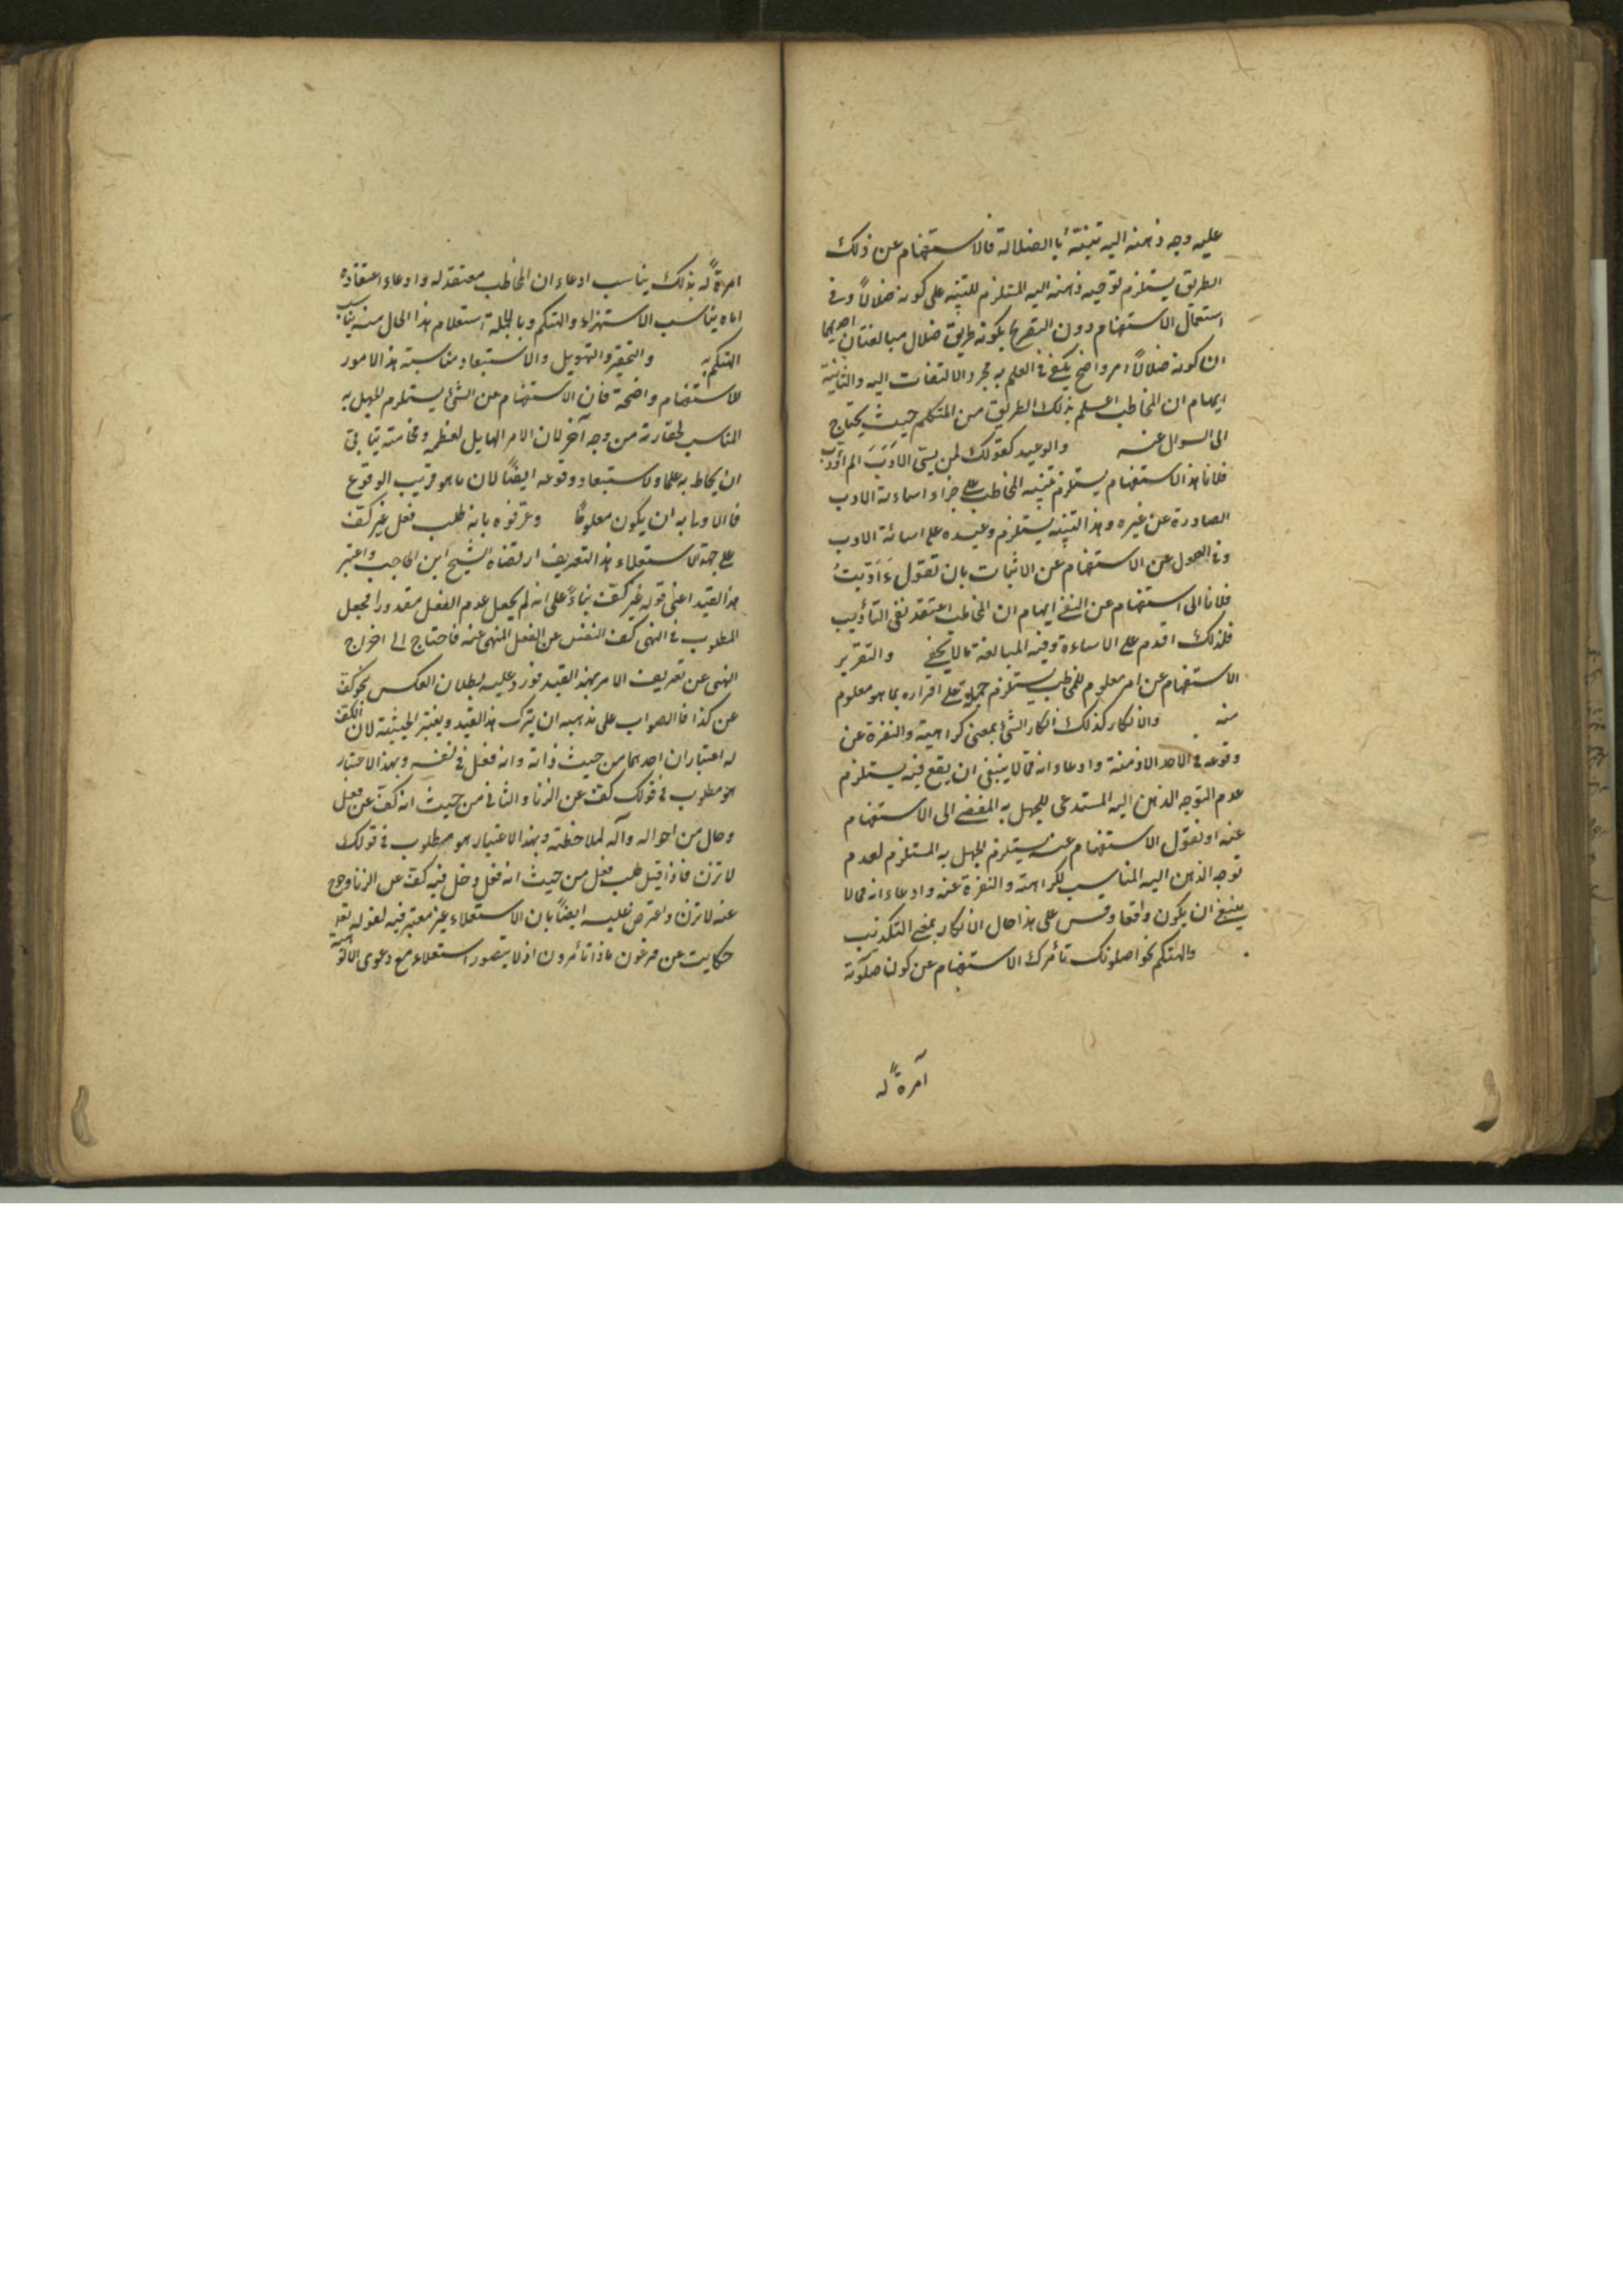 عليه وجه ذهنه اليه تنبّهًا بالضلالة فالاستفهام عن ذلك
الطريق يستلزم توجيه ذهنه اليه المستلزم للتنبيه على كونه ضلالًا وفى
استعمال الاستفهام دون التصريح بكونه طريق ضلال مبالغتان احديهما
ان كونه ضلالًا امر واضح يكفى فى العلم به مجرد الالتفات اليه والثانية
ايهام ان المخاطب اعلم بذلك الطريق من المتكلم حيث يحتاج
الى السوال عنه والوعيد كقولك لمن يسئ الادَب الم أؤدّب
فلانا هذا الاستفهام يستلزم تنبيه المخاطب على جزاء اساءة الادب
الصادرة عن غيره وهذا التنبيه يستلزم وعيده على اسائة الادب
وفى العدول عن الاستفهام عن الاثبات بان تقول ءَادّبتُ
فلانا الى استفهام عن النفى ايهام ان المخاطب اعتقد نفى التأديب
فلذلك اقدم على الاساءة وفيه المبالغة ما لا يخفى والتقرير
الاستفهام عن امر معلوم للمخاطب يستلزم حمله على اقراره بما هو معلوم
منه والانكار كذلك انكار الشئ بمعنى كراهيته والنفرة عن
وقوعه فى الاحد الازمنة وادعاء انه مما لا ينبغى ان يقع فيه يستلزم
عدم التوجه الذهن اليه المستدعى للجهل به المفضى الى الاستفهام
عنه او نقول الاستفهام عنه يستلزم الجهل به المستلزم لعدم
توجه الذهن اليه المناسب لكراهته والنفرة عنه وادعاء انه مما لا
ينبغى ان يكون واقعا وقس على هذا حال الانكار بمعنى التكذيب
والتهكم نحو اصلوتك تأمرك الاستفهام عن كون صلوته
آمرةً له
امرةً له بذلك يناسب ادعاء ان المخاطب معتقد له وادعاء اعتقاده
اياه يناسب الاستهزاء والتهكم وبالجملة استعلام هذا الحال منه يناسب
التهكم به والتحقير والتهويل والاستبعاد مناسبة هذا الامور
للاستفهام واضحة فان الاستفهام عن الشئ يستلزم للجهل به
المناسب لحقارته من وجه آخر لان الامر الهايل لعظمه وفخامته ينافى
ان يحاط به علما ولاستبعاد وقوعه ايضًا لان ما هو قريب الوقوع
فالاولى به ان يكون معلومًا وعرّفوه بانه طلب فعل غير كفّ
على جهة الاستعلاء هذا التعريف ارتضاه الشيخ ابن الحاجب واعتبر
هذا القيد اعنى قوله غير كفّ بناءً على انه لم يجعل عدم الفعل مقدورا فجعل
المطلوب فى النهى كف النفس عن الفعل المنهى عنه فاحتاج الى اخراج
النهى عن تعريف الامر بهذا القيد فورد عليه بطلان العكس نحو كفّ
عن كذا فالصواب على مذهبه ان يترك هذا القيد ويعتبر الحيثية لان الكفّ
له اعتباران احدهما من حيث ذاته وانه فعل فى نفسه وبهذا الاعتبار
هو مطلوب فى قولك كف عن الزنا والثانى من حيث انه كفّ عن فعل
وحال من احواله وآلة لملاحظته وبهذا الاعتبار هو مطلوب فى قولك
لا تزن فاذا قيل طلب فعل من حيث انه فعل دخل فيه كف عن الزنا وخرج
عنه لا تزن واعترض عليه ايضًا بان الاستعلاء غير معتبر فيه لقوله تعلى
حكايت عن فرعون ماذا تأمرون اذ لا يتصور استعلاء مع دعوى الالوهية